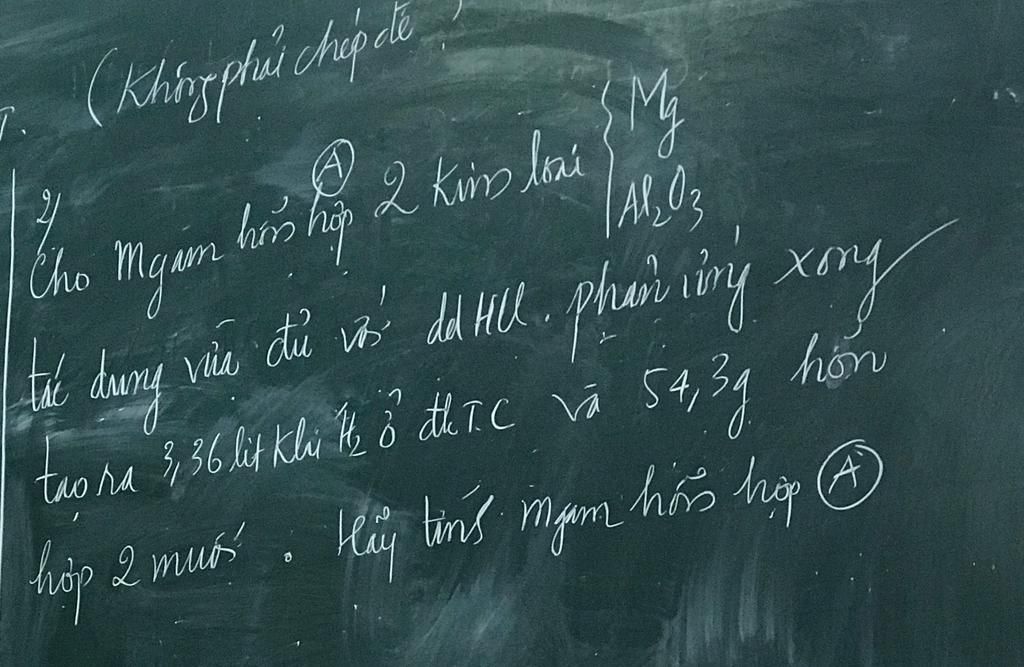 (Không phải chép đề
2/
Cho mgam hỗn hợp (A) 2 kim loại { Mg
Al₂O₃
tác dụng vừa đủ với dd HCl. phản ứng xong
tạo ra 3,36 lít khí H₂ ở đkTC và 54,3g hỗn
hợp 2 muối. Hãy tính mgam hỗn hợp (A)